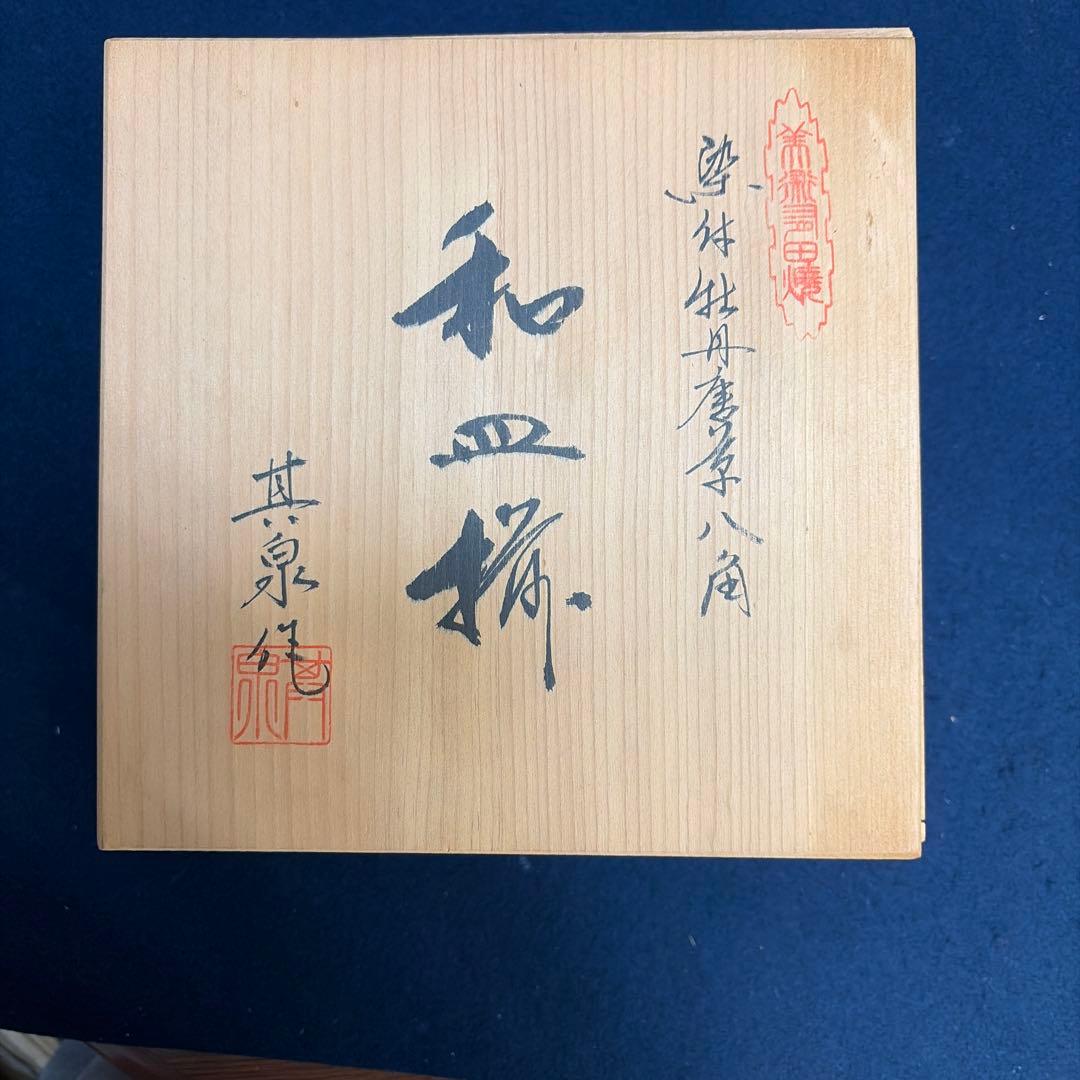 美術有田焼
染付牡丹唐草八角
和皿揃
其泉作
其泉